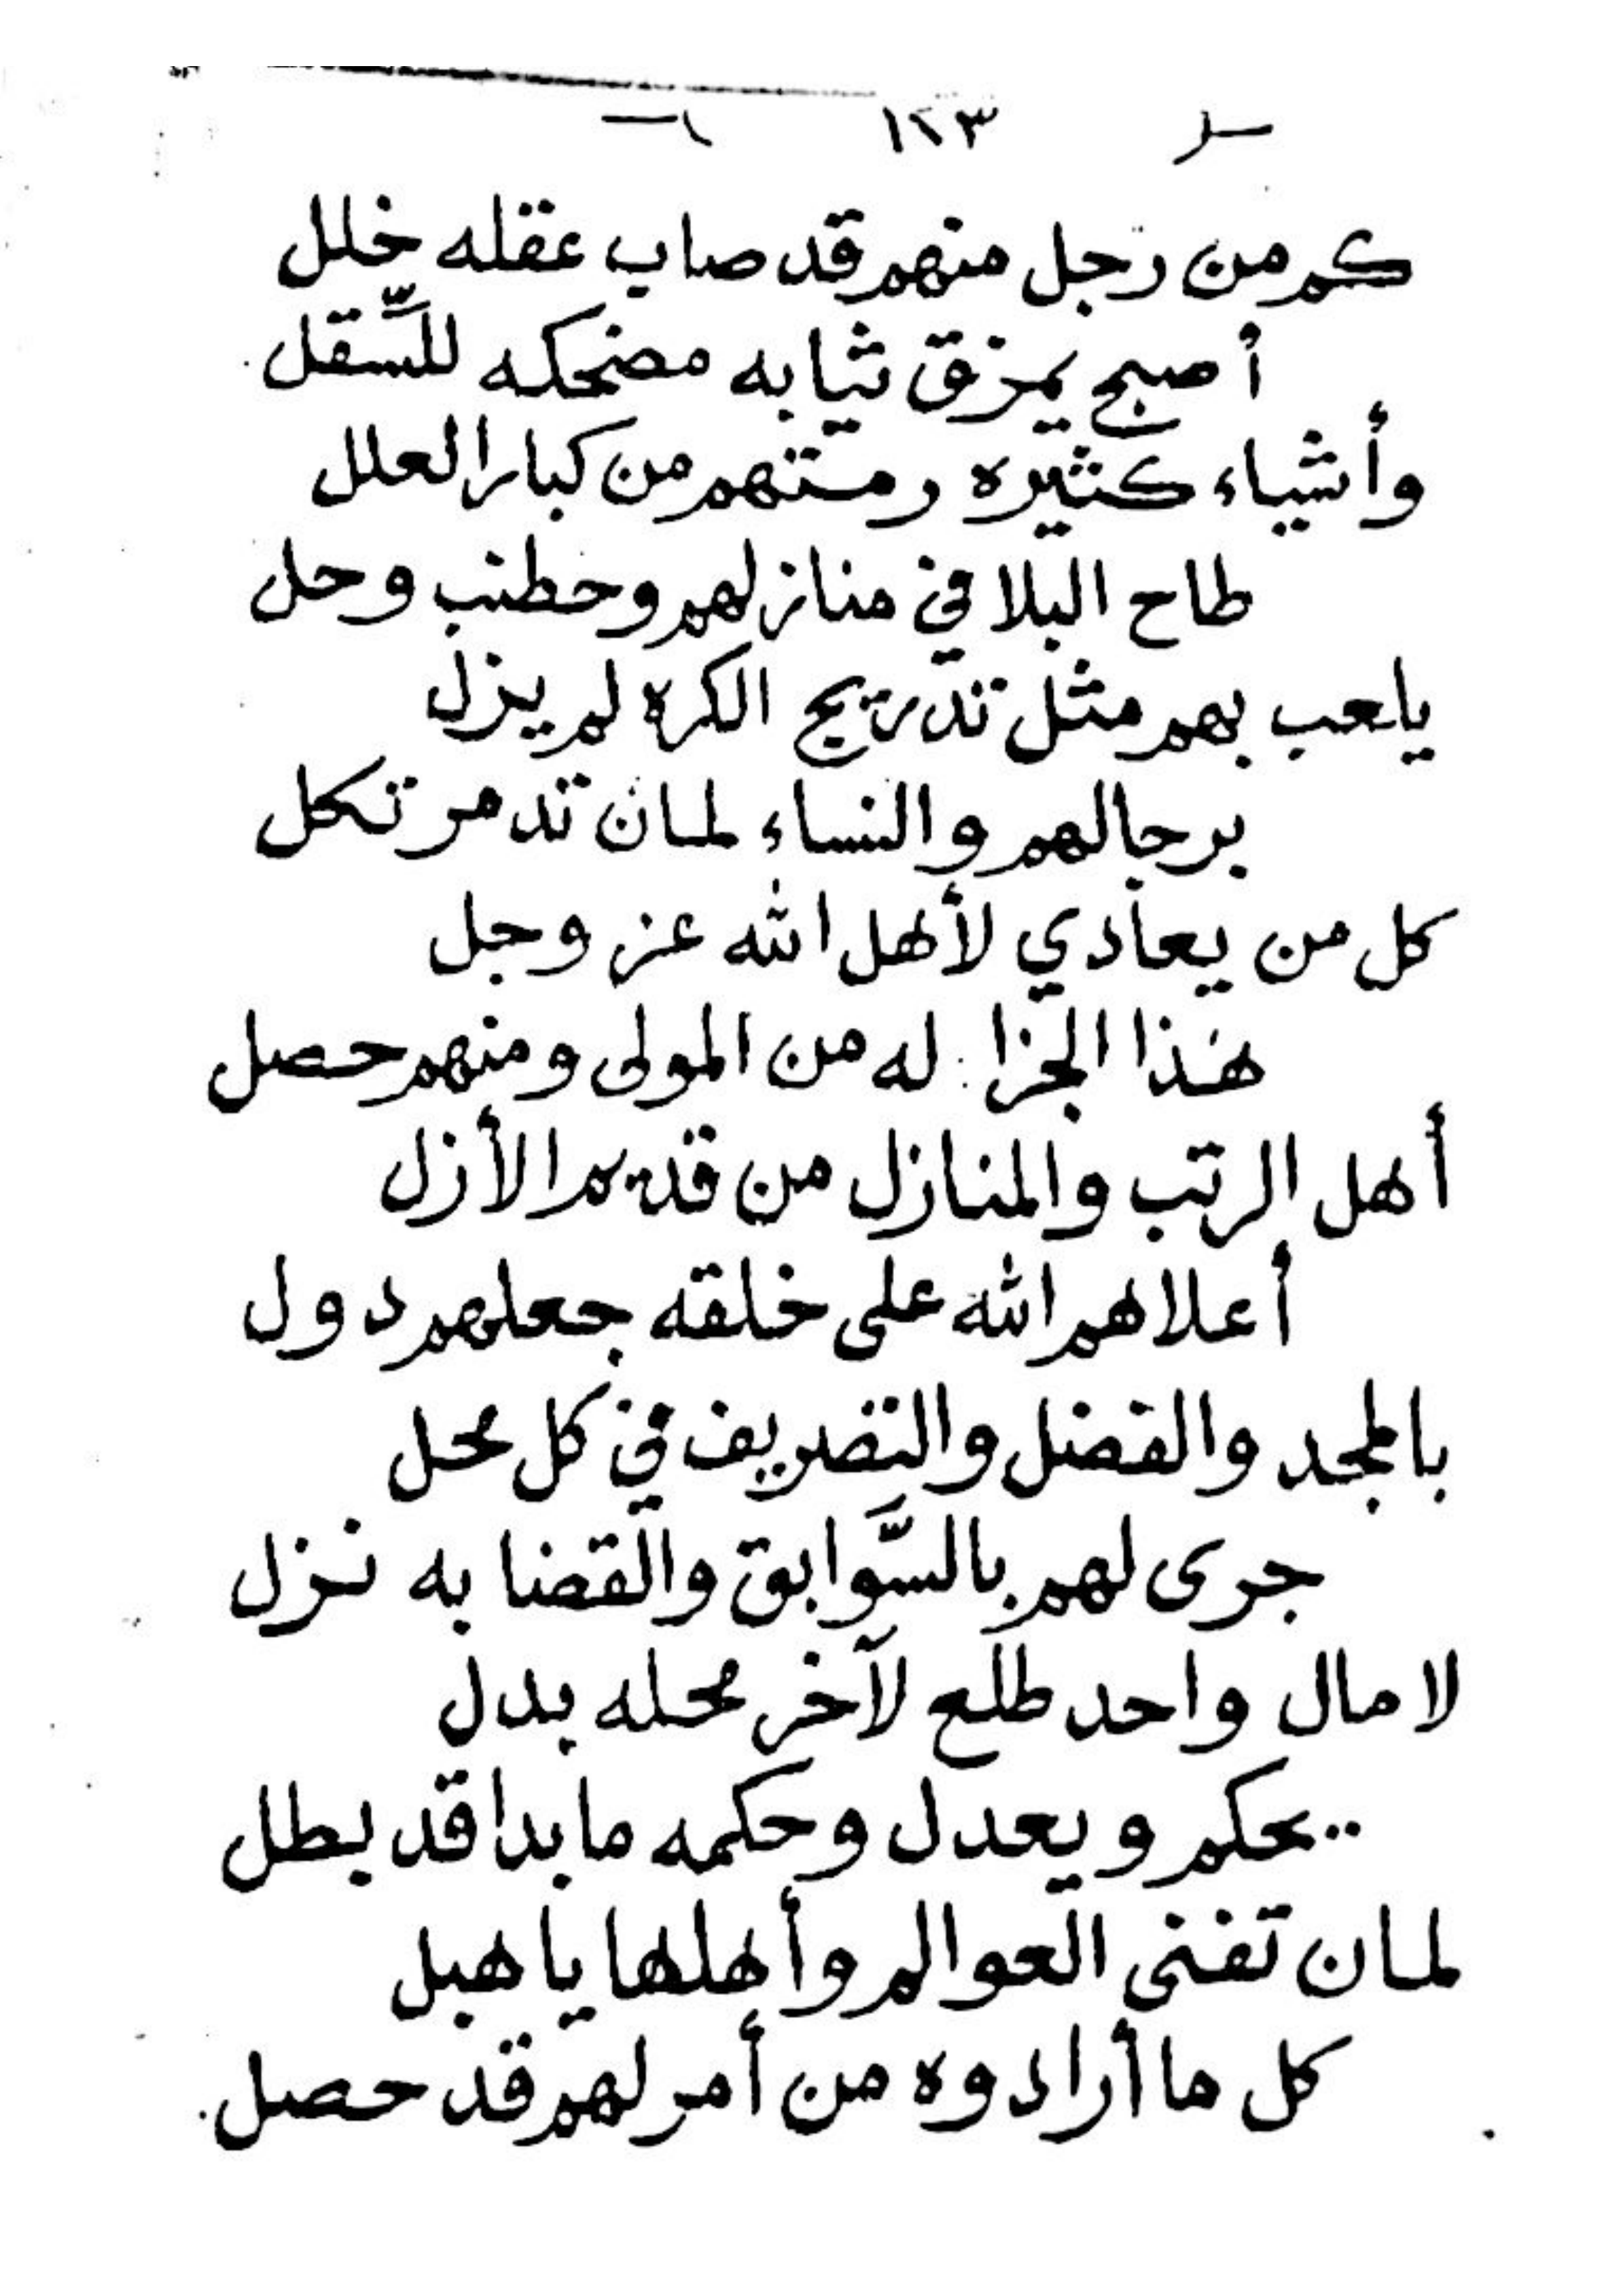 ١٢٣
كم من رجل منهم قد صاب عقله خلل
أصبح يمزق ثيابه مضحكه للسِّقل
وأشياء كثيره رمتهم من كبار العلل
طاح البلا في منازلهم وحطنب وحل
يلعب بهم مثل تدريج الكره لم يزل
برجالهم والنساء لمان تدمر تكل
كل من يعادي لأهل الله عز وجل
هذا الجزا له من المولى ومنهم حصل
أهل الرتب والمنازل من قديم الأزل
أعلاهم الله على خلقه جعلهم دول
بالمجد والفضل والتصريف في كل محل
جرى لهم بالسَّوابق والقضا به نزل
لا مال واحد طلع لآخر محله بدل
يحكم ويعدل وحكمه ما بدا قد بطل
لمان تفنى العوالم وأهلها يا هبل
كل ما أرادوه من أمر لهم قد حصل